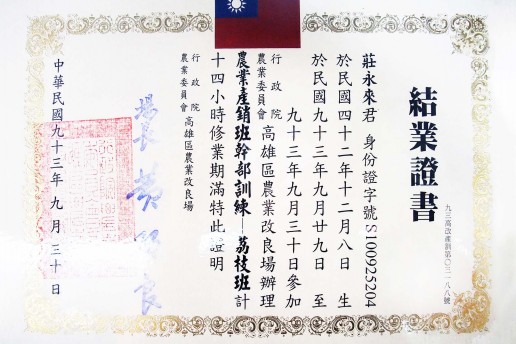 結業證書
九三高改產訓第〇三一八八號
莊永來君 身份證字號S100925204
於民國四十二年十二月八日 生
於民國九十三年九月廿九日 至
九十三年九月三十日參加
行政院
農業委員會 高雄區農業改良場辦理
農業產銷班幹部訓練—荔枝班計
十四小時修業期滿特此證明
行政院
農業委員會 高雄區農業改良場
場長
中華民國九十三年 九月 三十日